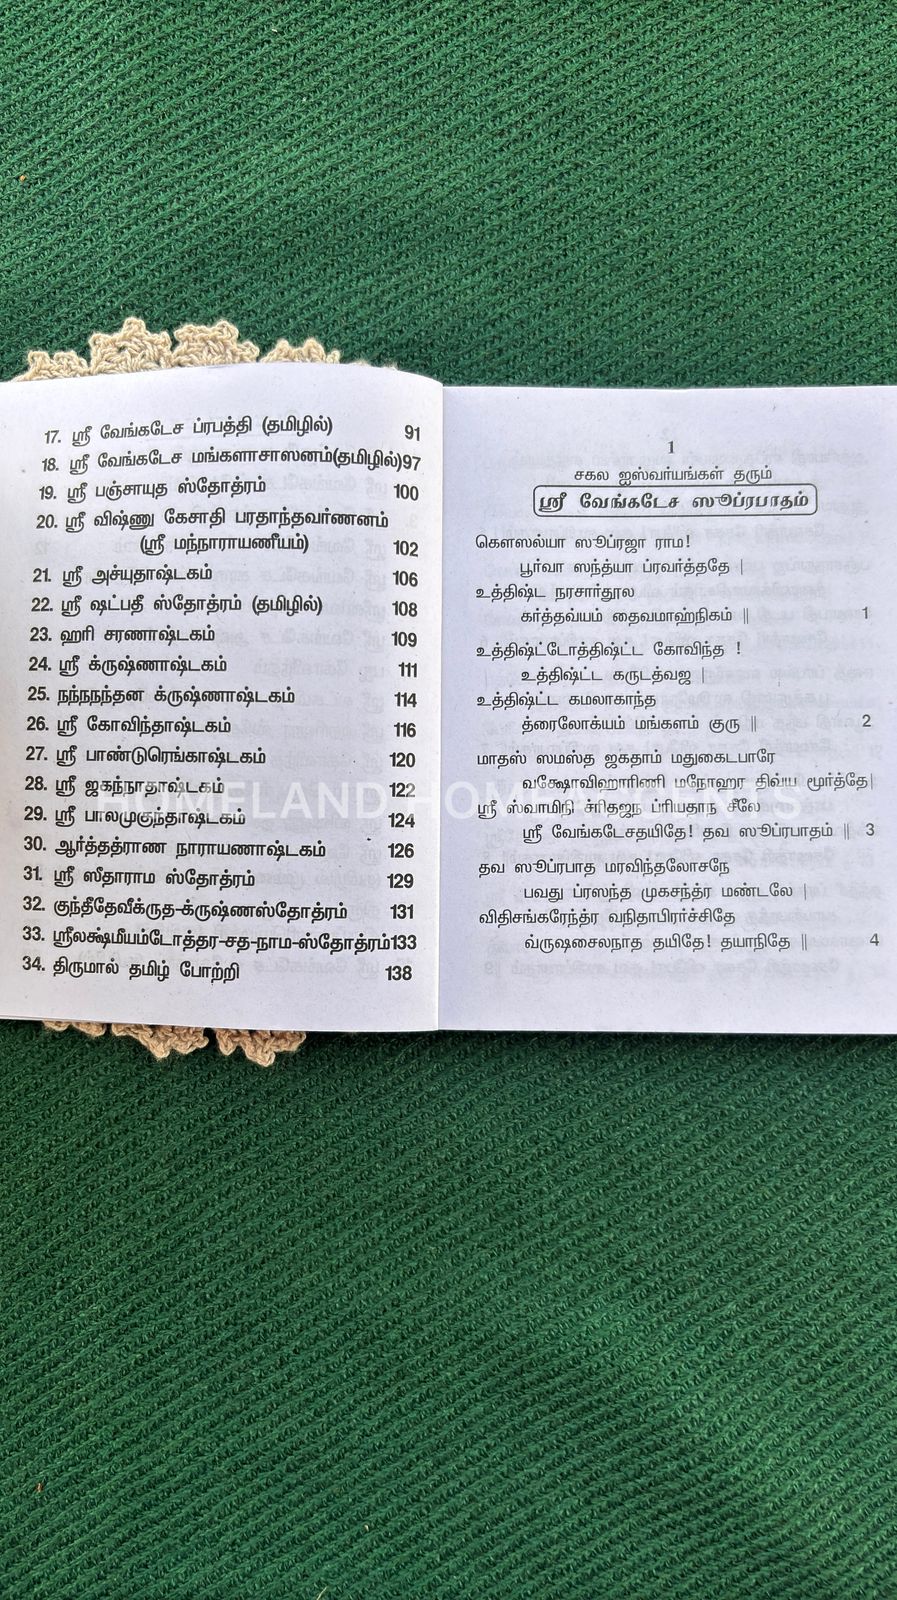 17. ஸ்ரீ வேங்கடேச ப்ரபத்தி (தமிழில்) 91
18. ஸ்ரீ வேங்கடேச மங்களாசாஸனம்(தமிழில்)97
19. ஸ்ரீ பஞ்சாயுத ஸ்தோத்ரம் 100
20. ஸ்ரீ விஷ்ணு கேசாதி பரதாந்தவர்ணனம்
(ஸ்ரீ மந்நாராயணீயம்) 102
21. ஸ்ரீ அச்யுதாஷ்டகம் 106
22. ஸ்ரீ ஷட்பதீ ஸ்தோத்ரம் (தமிழில்) 108
23. ஹரி சரணாஷ்டகம் 109
24. ஸ்ரீ க்ருஷ்ணாஷ்டகம் 111
25. நந்நநந்தன க்ருஷ்ணாஷ்டகம் 114
26. ஸ்ரீ கோவிந்தாஷ்டகம் 116
27. ஸ்ரீ பாண்டுரெங்காஷ்டகம் 120
28. ஸ்ரீ ஜகந்நாதாஷ்டகம் 122
29. ஸ்ரீ பாலமுகுந்தாஷ்டகம் 124
30. ஆர்த்தத்ராண நாராயணாஷ்டகம் 126
31. ஸ்ரீ ஸீதாராம ஸ்தோத்ரம் 129
32. குந்தீதேவீக்ருத-க்ருஷ்ணஸ்தோத்ரம் 131
33. ஸ்ரீலக்ஷ்மீயம்டோத்தர-சத-நாம-ஸ்தோத்ரம்133
34. திருமால் தமிழ் போற்றி 138
1
சகல ஐஸ்வர்யங்கள் தரும்
ஸ்ரீ வேங்கடேச ஸூப்ரபாதம்
கௌஸல்யா ஸூப்ரஜா ராம!
பூர்வா ஸந்த்யா ப்ரவர்த்ததே |
உத்திஷ்ட நரசார்தூல
கர்த்தவ்யம் தைவமாஹ்நிகம் || 1
உத்திஷ்ட்டோத்திஷ்ட்ட கோவிந்த !
உத்திஷ்ட்ட கருடத்வஜ |
உத்திஷ்ட்ட கமலாகாந்த
த்ரைலோக்யம் மங்களம் குரு || 2
மாதஸ் ஸமஸ்த ஜகதாம் மதுகைடபாரே
வக்ஷோவிஹாரிணி மநோஹர திவ்ய மூர்த்தே|
ஸ்ரீ ஸ்வாமிநி ச்ரிதஜந ப்ரியதாந சீலே
ஸ்ரீ வேங்கடேசதயிதே! தவ ஸூப்ரபாதம் || 3
தவ ஸூப்ரபாத மரவிந்தலோசநே
பவது ப்ரஸந்த முகசந்த்ர மண்டலே |
விதிசங்கரேந்த்ர வநிதாபிரர்ச்சிதே
வ்ருஷசைலநாத தயிதே! தயாநிதே || 4
HOMELAND HOME